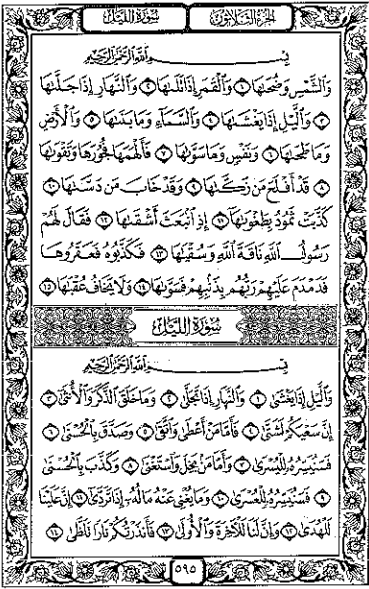 سُورَةُ اللَّيْلِ
الجُزْءُ الثَّلَاثُونَ
بِسْمِ اللَّهِ الرَّحْمَٰنِ الرَّحِيمِ
وَالشَّمْسِ وَضُحَىٰهَا ١ وَالْقَمَرِ إِذَا تَلَىٰهَا ٢ وَالنَّهَارِ إِذَا جَلَّىٰهَا
٣ وَاللَّيْلِ إِذَا يَغْشَىٰهَا ٤ وَالسَّمَاءِ وَمَا بَنَىٰهَا ٥ وَالْأَرْضِ
وَمَا طَحَىٰهَا ٦ وَنَفْسٍ وَمَا سَوَّىٰهَا ٧ فَأَلْهَمَهَا فُجُورَهَا وَتَقْوَىٰهَا
٨ قَدْ أَفْلَحَ مَن زَكَّىٰهَا ٩ وَقَدْ خَابَ مَن دَسَّىٰهَا ١٠
كَذَّبَتْ ثَمُودُ بِطَغْوَىٰهَا ١١ إِذِ انبَعَثَ أَشْقَىٰهَا ١٢ فَقَالَ لَهُمْ
رَسُولُ اللَّهِ نَاقَةَ اللَّهِ وَسُقْيَٰهَا ١٣ فَكَذَّبُوهُ فَعَقَرُوهَا
فَدَمْدَمَ عَلَيْهِمْ رَبُّهُم بِذَنۢبِهِمْ فَسَوَّىٰهَا ١٤ وَلَا يَخَافُ عُقْبَٰهَا ١٥
سُورَةُ اللَّيْلِ
بِسْمِ اللَّهِ الرَّحْمَٰنِ الرَّحِيمِ
وَاللَّيْلِ إِذَا يَغْشَىٰ ١ وَالنَّهَارِ إِذَا تَجَلَّىٰ ٢ وَمَا خَلَقَ الذَّكَرَ وَالْأُنثَىٰ ٣
إِنَّ سَعْيَكُمْ لَشَتَّىٰ ٤ فَأَمَّا مَنْ أَعْطَىٰ وَاتَّقَىٰ ٥ وَصَدَّقَ بِالْحُسْنَىٰ ٦
فَسَنُيَسِّرُهُ لِلْيُسْرَىٰ ٧ وَأَمَّا مَنۢ بَخِلَ وَاسْتَغْنَىٰ ٨ وَكَذَّبَ بِالْحُسْنَىٰ
٩ فَسَنُيَسِّرُهُ لِلْعُسْرَىٰ ١٠ وَمَا يُغْنِي عَنْهُ مَالُهُ إِذَا تَرَدَّىٰ ١١ إِنَّ عَلَيْنَا
لَلْهُدَىٰ ١٢ وَإِنَّ لَنَا لَلْآخِرَةَ وَالْأُولَىٰ ١٣ فَأَنذَرْتُكُمْ نَارًا تَلَظَّىٰ ١٤
٥٩٥